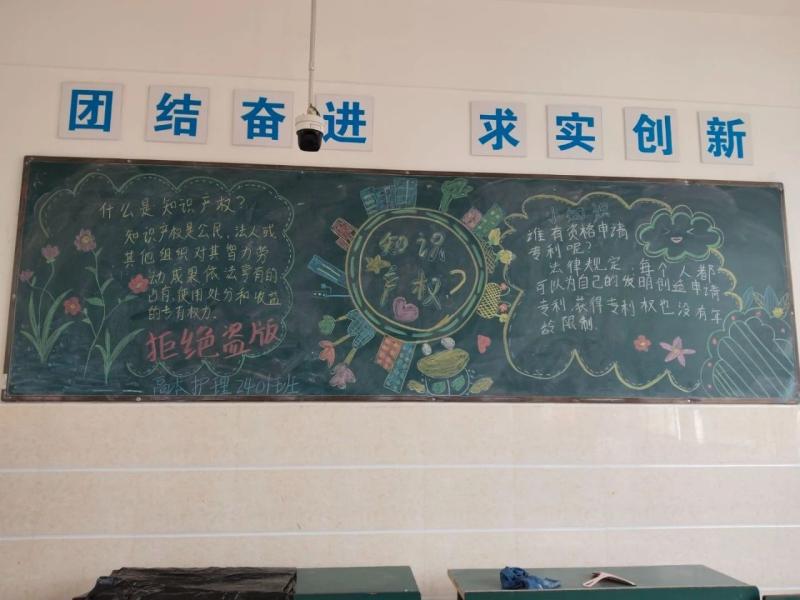 团结奋进 求实创新
什么是知识产权?
知识产权是公民、法人或
其他组织对其智力劳
动成果依法享有的
占有、使用处分和收益
的专有权力.
拒绝盗版
高本护理2401班
知识
产权?
谁有资格申请
专利呢?
法律规定:每个人都
可以为自己的发明创造申请
专利.获得专利权也没有年
龄限制.